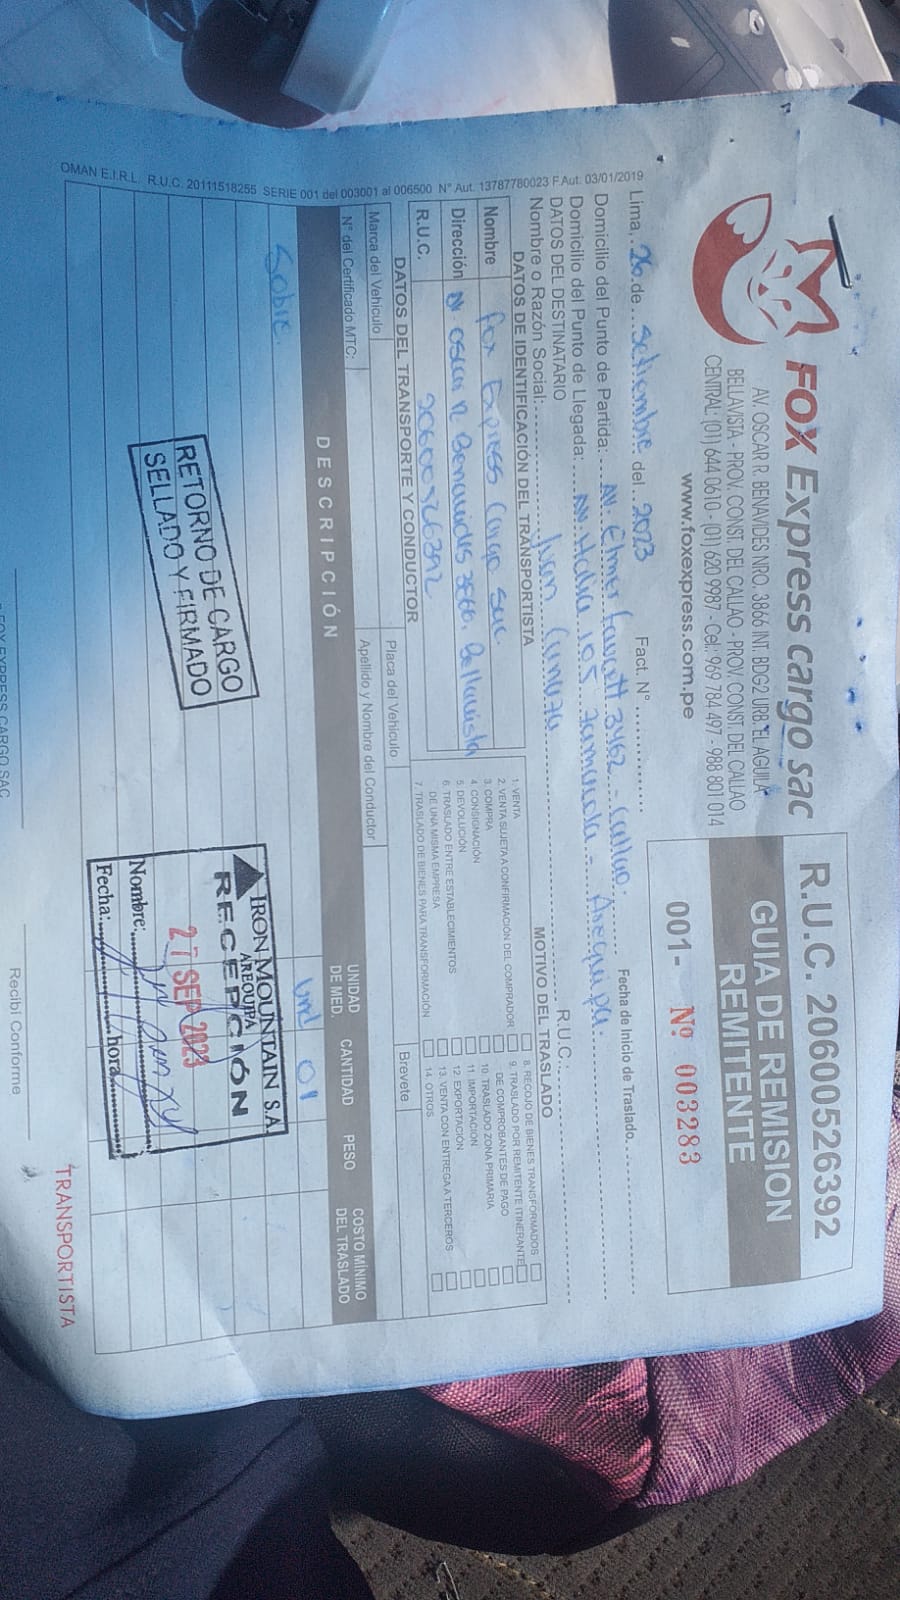 FOX Express cargo sac
AV. OSCAR R. BENAVIDES NRO. 3866 INT. BDG2 URB. EL AGUILA
BELLAVISTA - PROV. CONST. DEL CALLAO - PROV. CONST. DEL CALLAO
CENTRAL: (01) 644 0610 - (01) 620 9987 - Cel.: 969 784 497 - 988 801 014
www.foxexpress.com.pe
R.U.C. 20600526392
GUIA DE REMISION
REMITENTE
001- Nº 003283
Lima, 26 de setiembre del 2023 Fact. N° Fecha de Inicio de Traslado.
Domicilio del Punto de Partida: Av. Elmer Faucett 3462 - Callao.
Domicilio del Punto de Llegada: 105 - Arequipa.
DATOS DEL DESTINATARIO
Nombre o Razón Social: R.U.C.
DATOS DE IDENTIFICACIÓN DEL TRANSPORTISTA
Nombre Fox Express Cargo sac
Dirección Av. Oscar R Benavides 3866. Bellavista
R.U.C. 20600526392
MOTIVO DEL TRASLADO
1. VENTA
2. VENTA SUJETA A CONFIRMACIÓN DEL COMPRADOR
3. COMPRA
4. CONSIGNACIÓN
5. DEVOLUCIÓN
6. TRASLADO ENTRE ESTABLECIMIENTOS
DE UNA MISMA EMPRESA
7. TRASLADO DE BIENES PARA TRANSFORMACIÓN
8. RECOJO DE BIENES TRANSFORMADOS
9. TRASLADO POR REMITENTE ITINERANTE
DE COMPROBANTES DE PAGO
10. TRASLADO ZONA PRIMARIA
11. IMPORTACIÓN
12. EXPORTACIÓN
13. VENTA CON ENTREGA A TERCEROS
14. OTROS
DATOS DEL TRANSPORTE Y CONDUCTOR
Marca del Vehículo Placa del Vehículo
N° del Certificado MTC: Apellido y Nombre del Conductor Brevete
DESCRIPCIÓN UNIDAD DE MED. CANTIDAD PESO COSTO MÍNIMO DEL TRASLADO
Und 01
Sobre.
RETORNO DE CARGO
SELLADO Y FIRMADO
IRON MOUNTAIN S.A.
AREQUIPA
RECEPCIÓN
27 SEP 2023
Nombre:
Fecha: hora
OMAN E.I.R.L. R.U.C. 20111518255 SERIE 001 del 003001 al 006500 N° Aut. 13787780023 F.Aut. 03/01/2019
FOX EXPRESS CARGO SAC
Recibí Conforme
TRANSPORTISTA